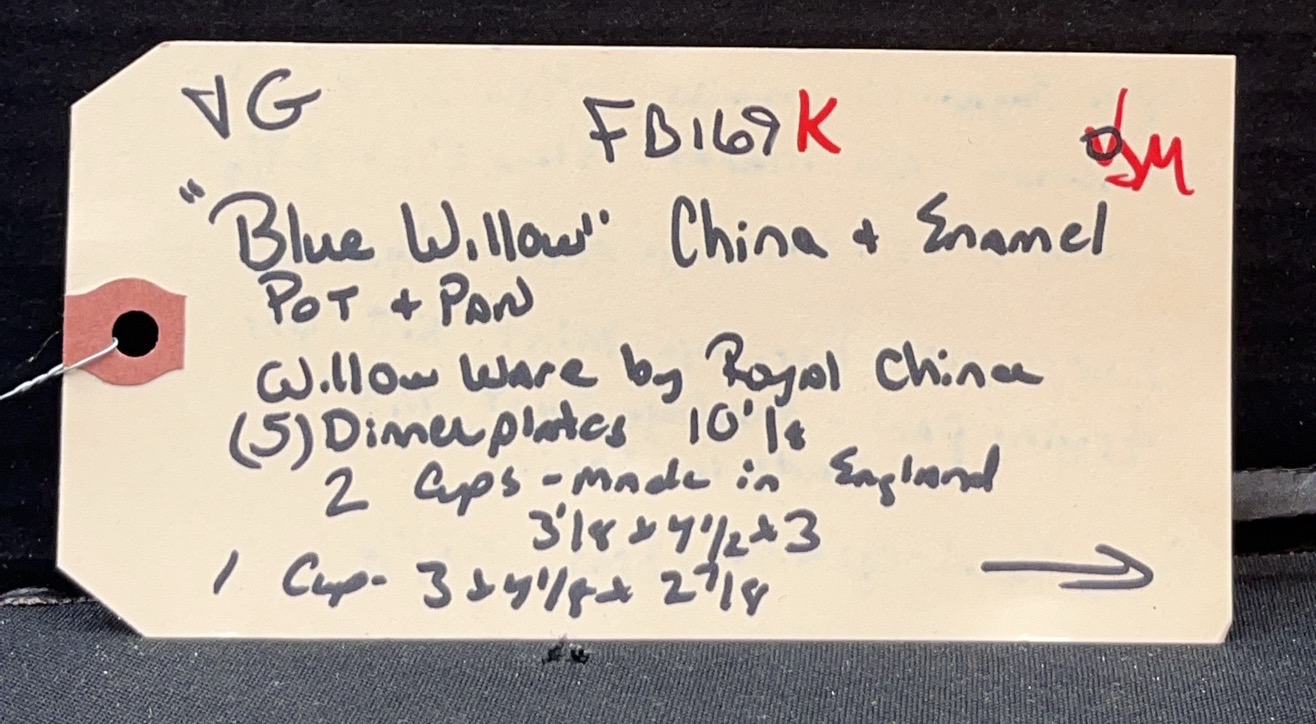 VG FB169K JM
"Blue Willow" China + Enamel
POT + PAN
Willow Ware by Royal China
(5) Dinner plates 10 1/8
2 Cups - made in England
3 1/8 x 4 1/2 x 3
1 Cup - 3 x 4 1/8 x 2 7/8